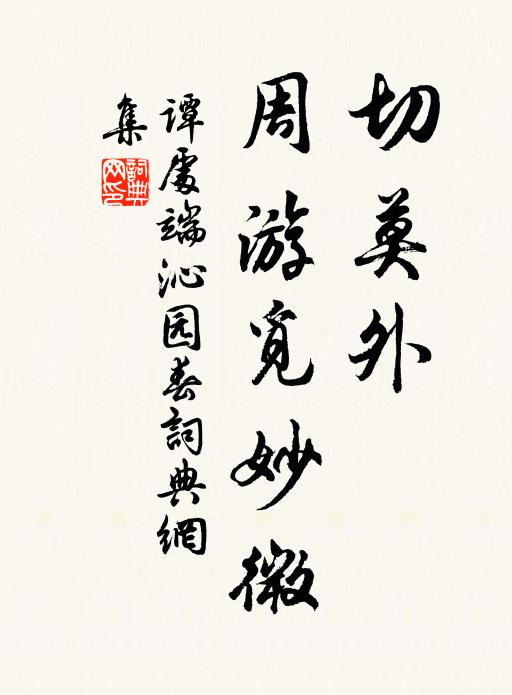 切莫外
周游觅妙微
谭处端沁园春詞典網
集
詞典
网印